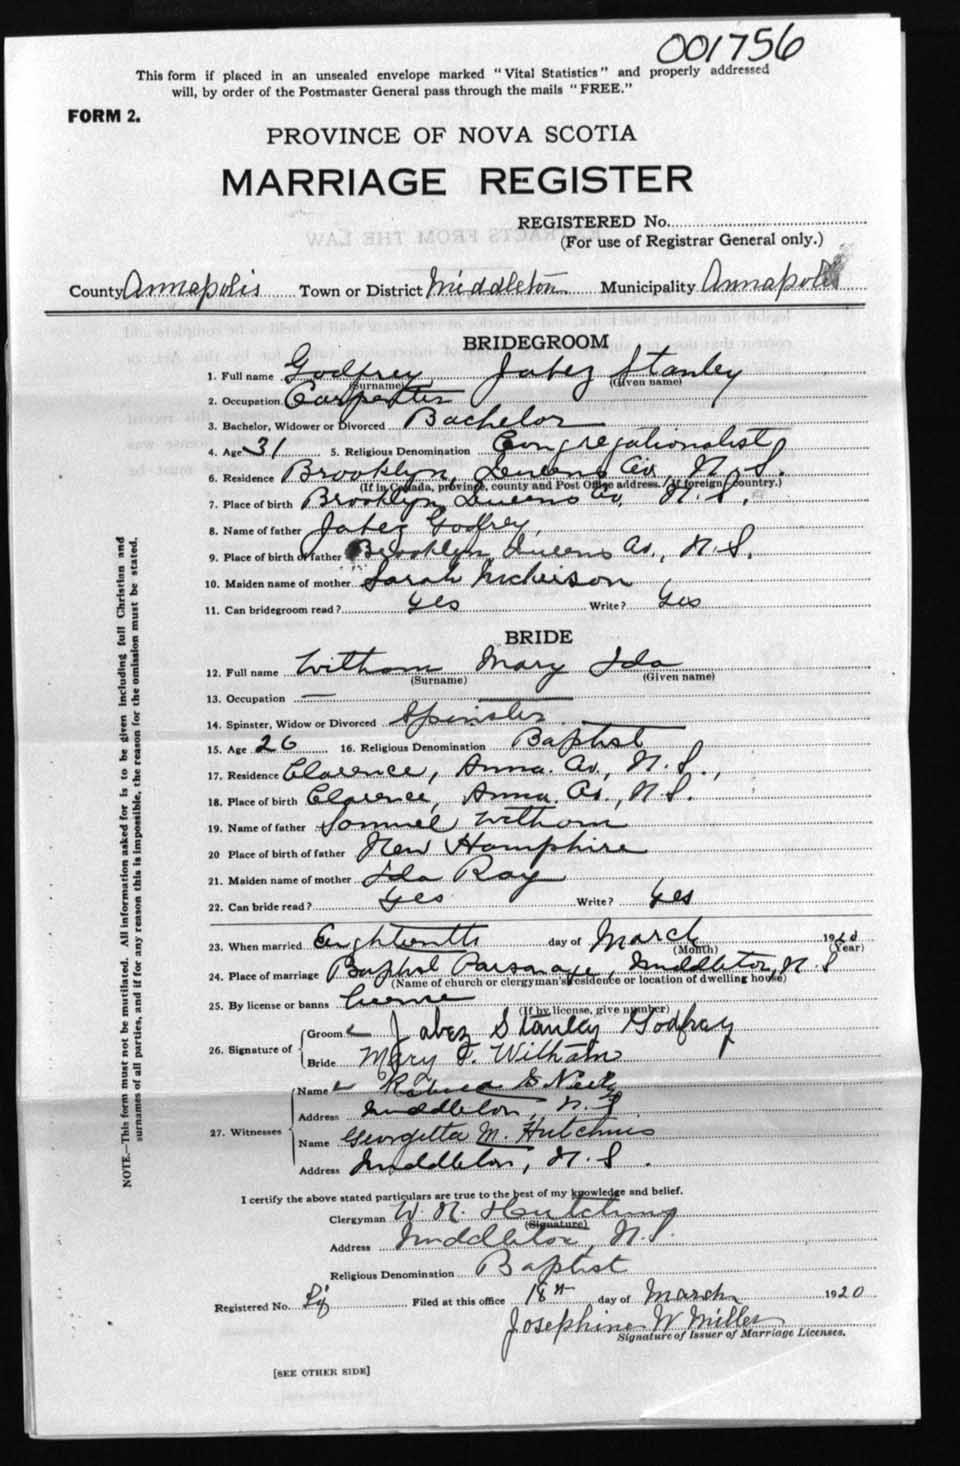 001756
This form if placed in an unsealed envelope marked "Vital Statistics" and properly addressed
will, by order of the Postmaster General pass through the mails "FREE."
FORM 2.
PROVINCE OF NOVA SCOTIA
MARRIAGE REGISTER
REGISTERED No.
(For use of Registrar General only.)
County Annapolis Town or District Middleton Municipality Annapolis
BRIDEGROOM
1. Full name Godfrey Jabez Stanley
(Surname) (Given name)
2. Occupation Carpenter
3. Bachelor, Widower or Divorced Bachelor
4. Age 31 5. Religious Denomination Congregationalist
6. Residence Brooklyn, Queens Co., N.S.
(If in Canada, province, county and Post Office address. If foreign, country.)
7. Place of birth Brooklyn, Queens Co. N.S.
8. Name of father Jabez Godfrey
9. Place of birth of father Brooklyn, Queens Co., N.S.
10. Maiden name of mother Sarah Nickerson
11. Can bridegroom read? Yes Write? Yes
BRIDE
12. Full name Witham Mary Ida
(Surname) (Given name)
13. Occupation —
14. Spinster, Widow or Divorced Spinster
15. Age 26 16. Religious Denomination Baptist
17. Residence Clarence, Anna. Co., N.S.,
18. Place of birth Clarence, Anna. Co., N.S.
19. Name of father Samuel Witham
20 Place of birth of father New Hampshire
21. Maiden name of mother Ida Ray
22. Can bride read? Yes Write? Yes
23. When married Eighteenth day of March 1920
(Month) (Year)
24. Place of marriage Baptist Parsonage, Middleton, N.S
(Name of church or clergyman's residence or location of dwelling house)
25. By license or banns License
(If by license, give number)
26. Signature of Groom Jabez Stanley Godfrey
Bride Mary I. Witham
27. Witnesses Name Neily
Address Middleton, N.S
Name Georgetta M. Hutchins
Address Middleton, N.S.
I certify the above stated particulars are true to the best of my knowledge and belief.
Clergyman W. N. Hutchins
(Signature)
Address Middleton, N.S.
Religious Denomination Baptist
Registered No. Filed at this office 18th day of March 1920
Josephine W Miller
Signature of Issuer of Marriage Licenses.
[SEE OTHER SIDE]
NOTE.—This form must not be mutilated. All information asked for is to be given including full Christian and
surnames of all parties, and if for any reason this is impossible, the reason for the omission must be stated.